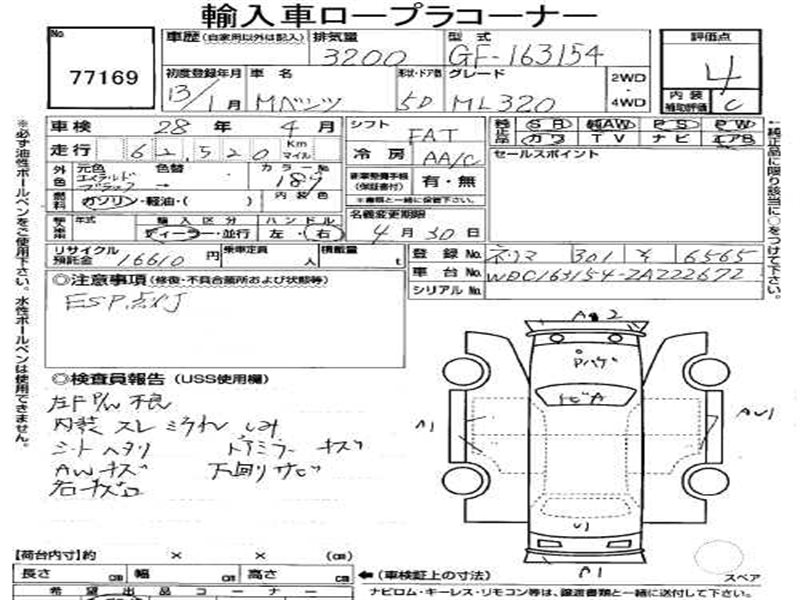 輸入車ロープラコーナー
No 77169
車歴(自家用以外は記入) 排気量 3200 型式 GF-163154 評価点 4
初度登録年月 13/1月 車名 Mベンツ 形状・ドア数 5D グレード ML320 2WD・4WD 内装補助評価 C
車検 28年 4月 シフト FAT
走行 62,520 Km マイル 冷房 AA/C
純正品 SR 純AW PS PW
カワ TV ナビ エアB
セールスポイント
外色 元色 エメラルドブラック 色替 → カラーNo 189
新車整備手帳(保証書付) 有・無
※書類と一緒に保管下さい。
燃料 ガソリン・軽油・( ) 内装色
年式 輸入区分 ディーラー・並行 ハンドル 左・右
名義変更期限 4月30日
リサイクル預託金 16610円 乗車定員 人 積載量 t
登録No. ネリマ 301 そ 6565
車台No. WDC163154-2A222672
シリアルNo.
◎注意事項(修復・不具合箇所および状態等)
ESP点灯
◎検査員報告(USS使用欄)
左F P/W 不良
内装 スレ ミワれ しみ
シートヘタリ ドアミラー キズ
AWキズ 下回りサビ
名キズ凹
A 2
Pハゲ
トビA
A1
AW1
U1
A1
スペア
【荷台内寸】約 × × (cm)
長さ cm 幅 cm 高さ cm
←(車検証上の寸法)
希望出品コーナー
ナビロム・キーレス・リモコン等は、譲渡書類と一緒に送付して下さい。
※必ず油性ボールペンをご使用下さい。水性ボールペンは使用できません。
←純正品に限り該当に○をつけて下さい。